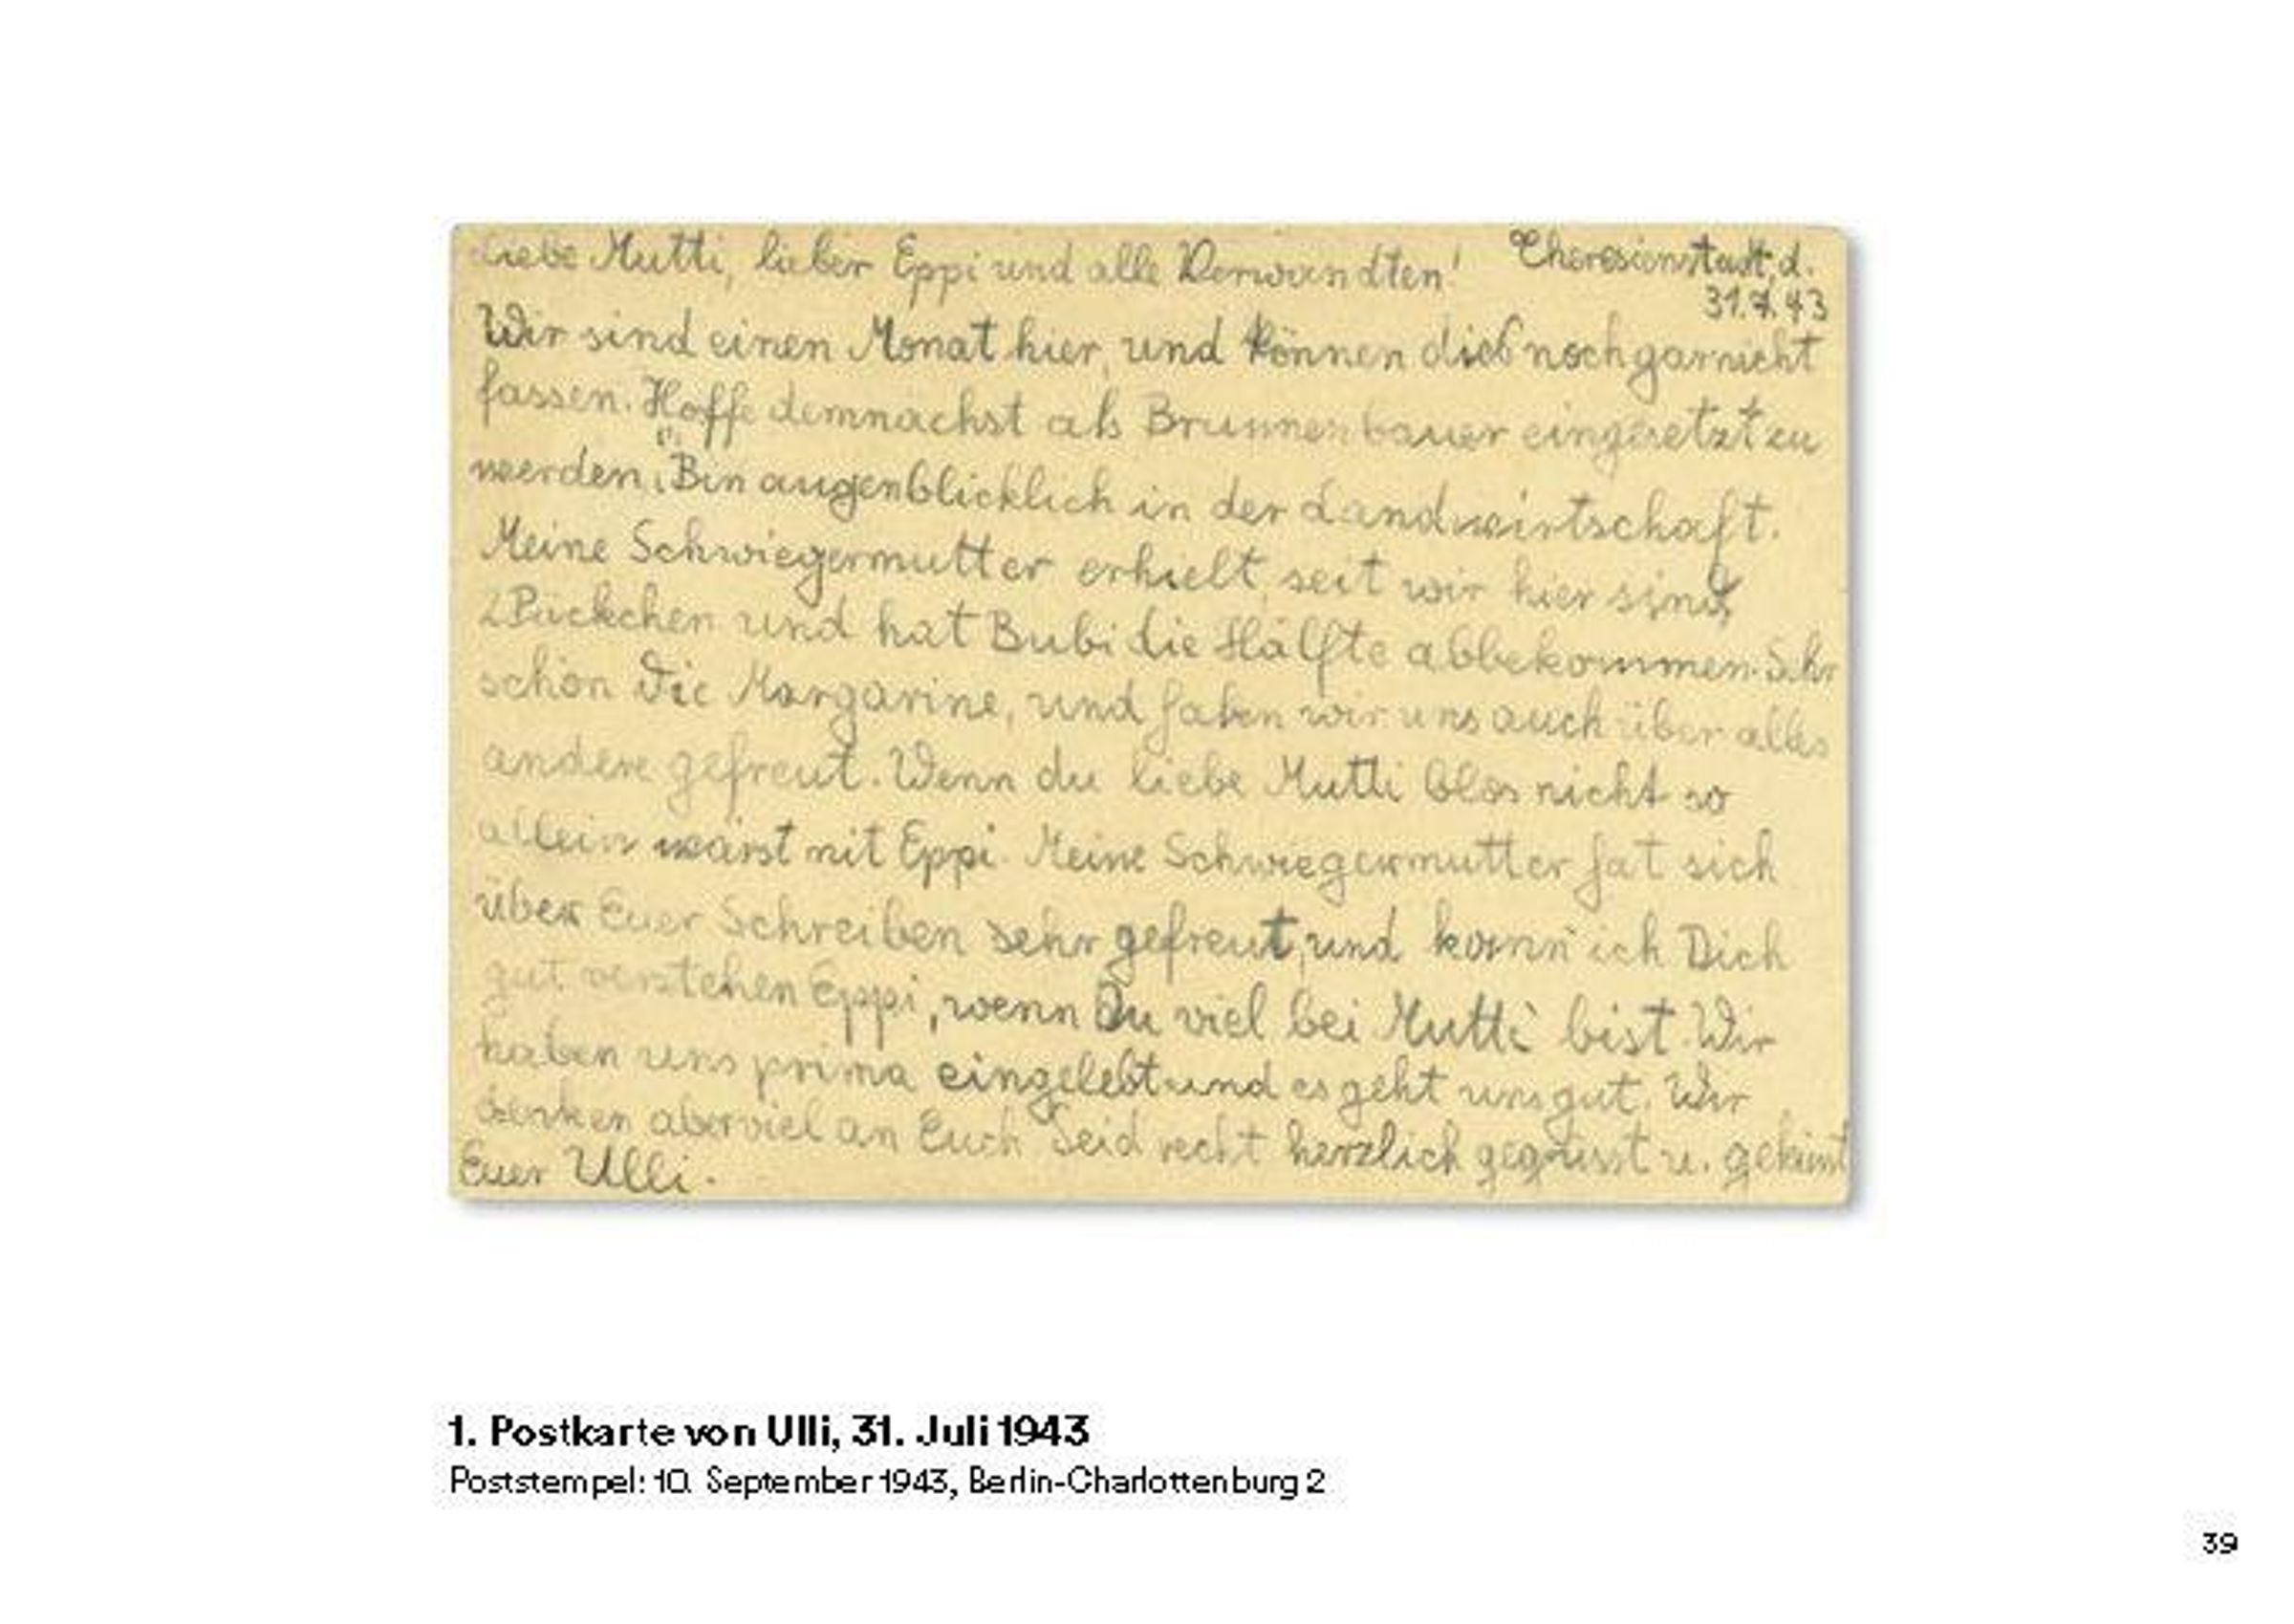 Liebe Mutti, lieber Eppi und alle Verwandten! Theresienstadt, d.
31.7.43
Wir sind einen Monat hier, und können dies noch garnicht
fassen. Hoffe demnächst als Brunnenbauer eingesetzt zu
werden. Bin augenblicklich in der Landwirtschaft.
Meine Schwiegermutter erhielt, seit wir hier sind,
2 Päckchen und hat Bubi die Hälfte abbekommen. Sehr
schön die Margarine, und haben wir uns auch über alles
andere gefreut. Wenn du liebe Mutti blos nicht so
allein wärst mit Eppi. Meine Schwiegermutter hat sich
über Euer Schreiben sehr gefreut, und kann ich Dich
gut verstehen Eppi, wenn Du viel bei Mutti bist. Wir
haben uns prima eingelebt und es geht uns gut. Wir
denken aber viel an Euch Seid recht herzlich gegrüsst u. geküsst
Euer Ulli.
1. Postkarte von Ulli, 31. Juli 1943
Poststempel: 10. September 1943, Berlin-Charlottenburg 2
39